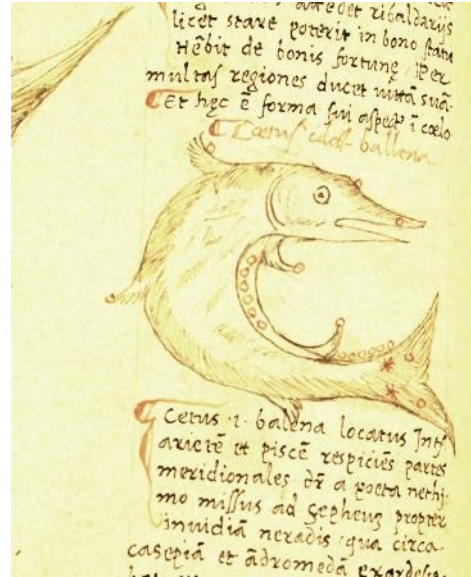 accedet ribaldarijs
licet stare poterit in bono statu
Hēbit de bonis fortunę Per
multas regiones ducet uittā suā.
Et hęc ē forma sui aspect9 ī cœlo
Cœtus idest ballena
Cetus .i. balena locatus Int
arietē et piscē respiciēs partes
meridionales dr̄ a poeta nethi-
mo missus ad Cepheuʒ propter
inuidiā neradis qua circa
casepiā et ādromedā exardesce